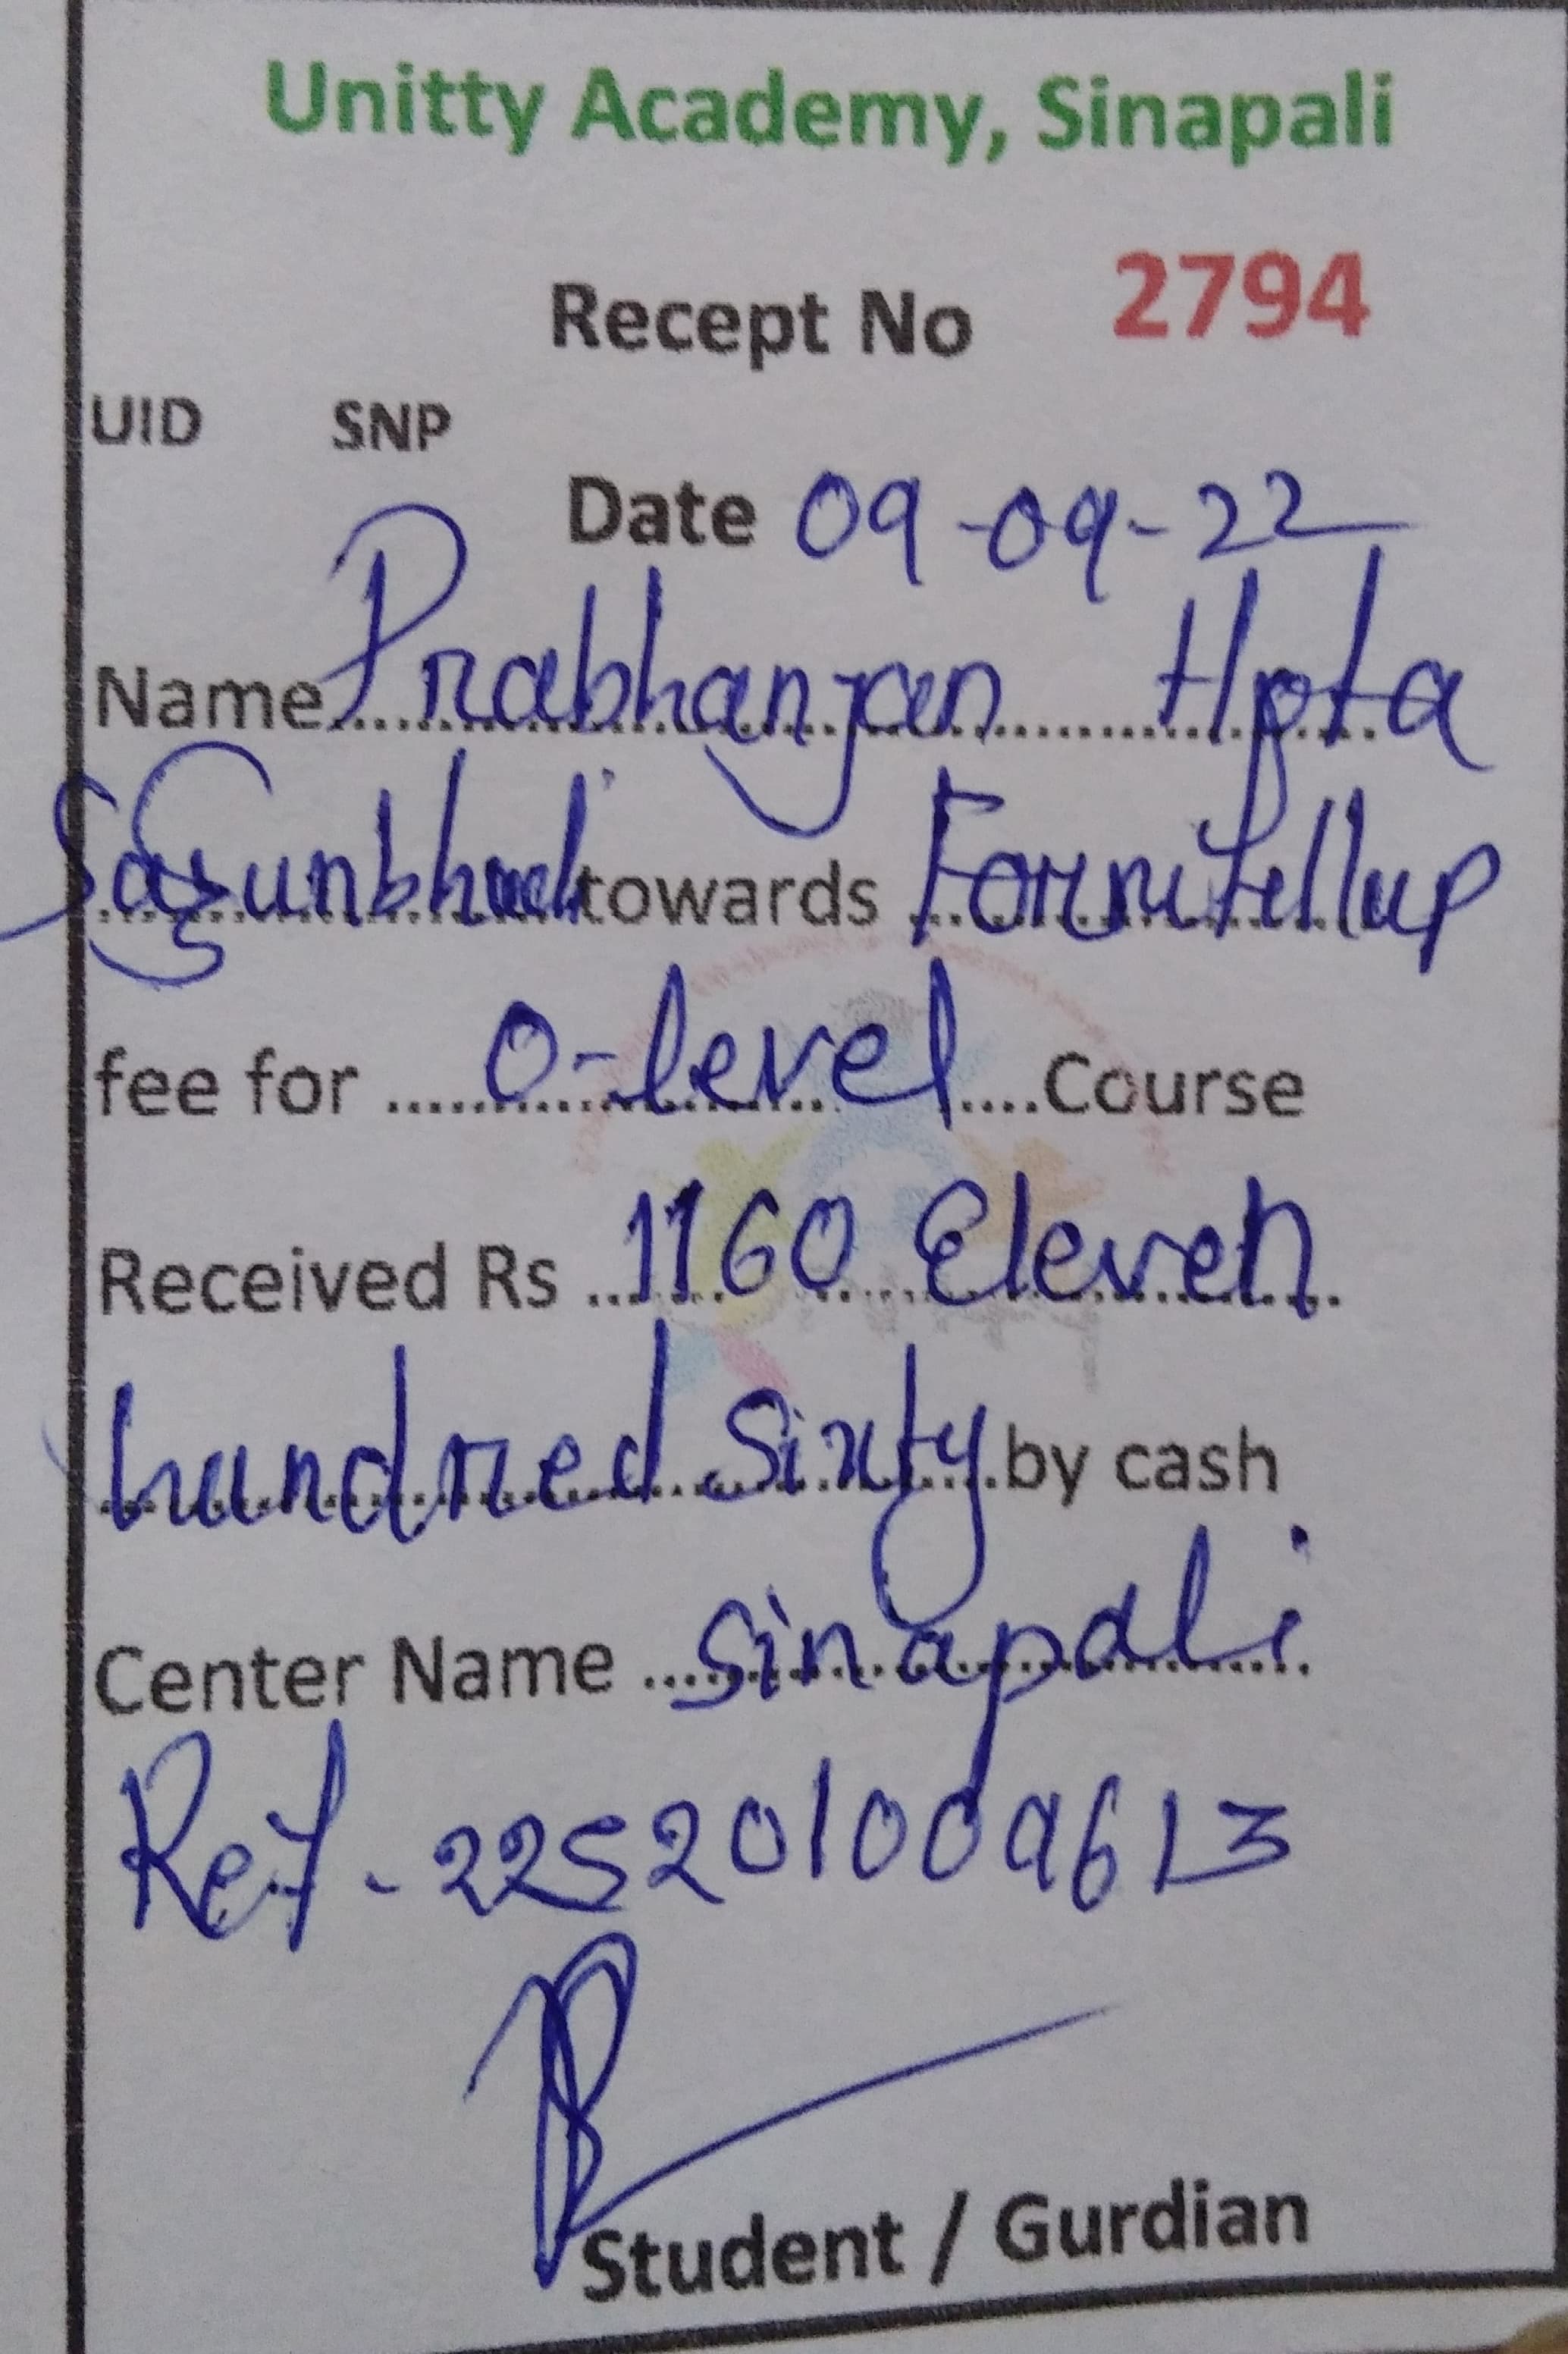 Unitty Academy, Sinapali
Recept No 2794
UID SNP
Date 09-09-22
Name Prabhanjan Hota
Sagunbhadi towards Formfillup
fee for O-level Course
Received Rs 1160 Eleven
hundred Sixty by cash
Center Name Sinapali
Ref - 225201009613
Student / Gurdian